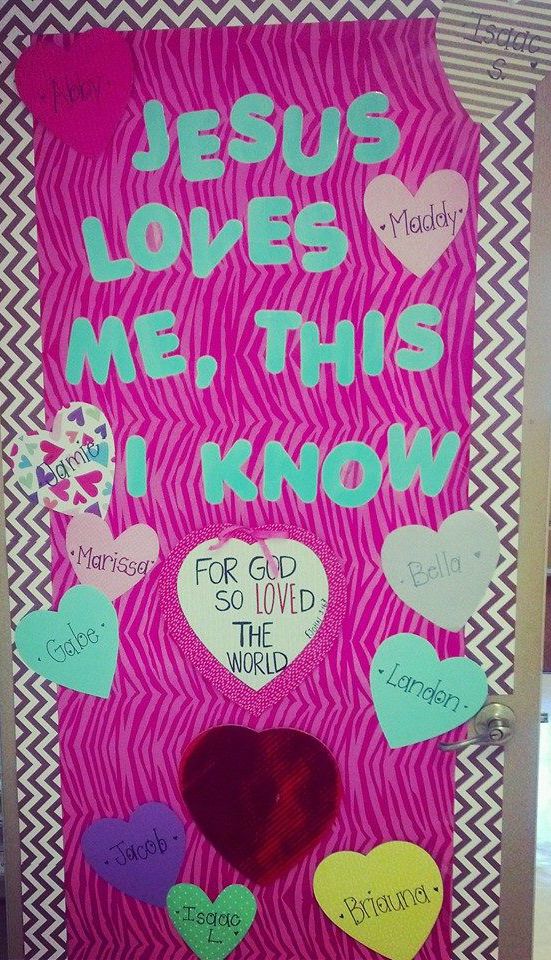 Isaac
S.
Abby
JESUS
LOVES
Maddy
ME, THIS
I KNOW
Jamie
Marissa
FOR GOD
SO LOVED
THE
WORLD
Bella
Gabe
Landon
Jacob
Isaac
L.
Briauna